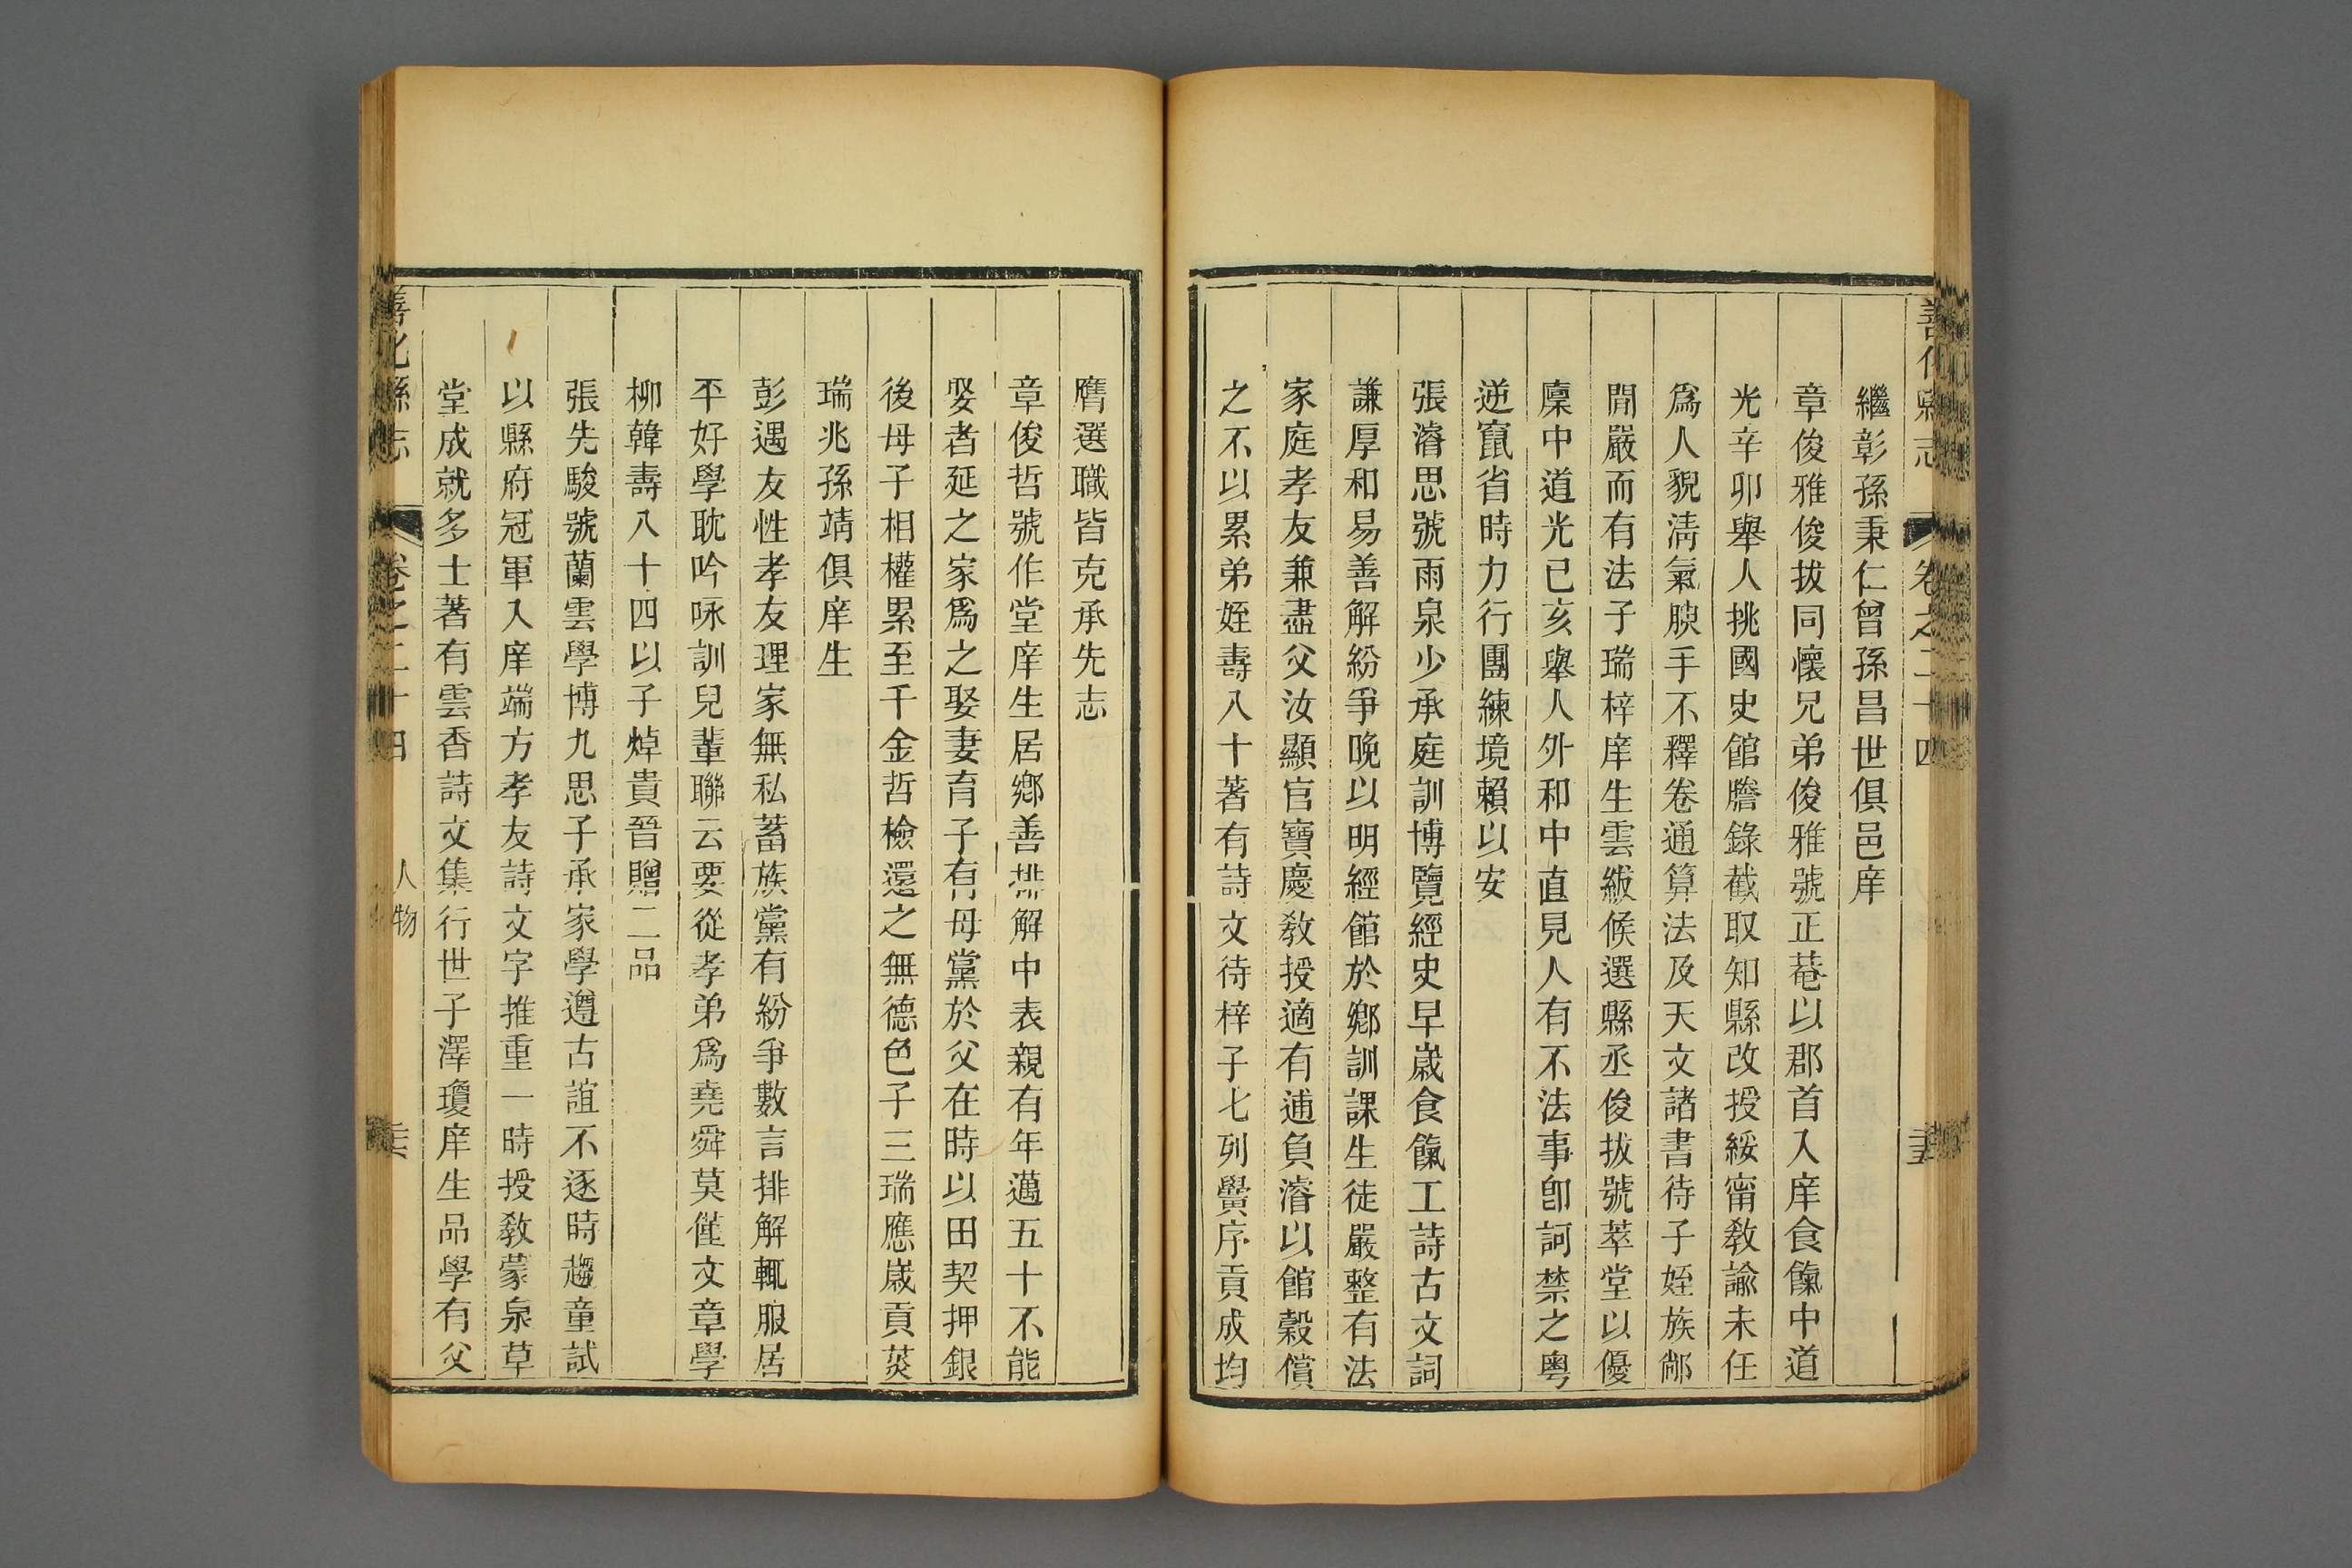 善化縣志 卷之二十四
繼彰孫秉仁曾孫昌世俱邑庠
章俊雅俊拔同懷兄弟俊雅號正菴以郡首入庠食餼中道
光辛卯舉人挑國史館謄錄截取知縣改授綏甯教諭未任
爲人貌淸氣腴手不釋卷通算法及天文諸書待子姪族鄰
閒嚴而有法子瑞梓庠生雲紱候選縣丞俊拔號萃堂以優
廩中道光己亥舉人外和中直見人有不法事卽訶禁之粵
逆竄省時力行團練境賴以安
張濬思號雨泉少承庭訓博覽經史早歲食餼工詩古文詞
謙厚和易善解紛爭晚以明經館於鄉訓課生徒嚴整有法
家庭孝友兼盡父汝顯官寶慶教授適有逋負濬以館穀償
之不以累弟姪壽八十著有詩文待梓子七列黌序貢成均
膺選職皆克承先志
章俊哲號作堂庠生居鄉善排解中表親有年邁五十不能
娶者延之家爲之娶妻育子有母黨於父在時以田契押銀
後母子相權累至千金哲檢還之無德色子三瑞應歲貢瑛
瑞兆孫靖俱庠生
彭遇友性孝友理家無私蓄族黨有紛爭數言排解輒服居
平好學耽吟咏訓兒輩聯云要從孝弟爲堯舜莫僅文章學
柳韓壽八十四以子焯貴晉贈二品
張先駿號蘭雲學博九思子承家學遵古誼不逐時趨童試
以縣府冠軍入庠端方孝友詩文字推重一時授教蒙泉草
堂成就多士著有雲香詩文集行世子澤瓊庠生品學有父
善化縣志 卷之二十四 人物